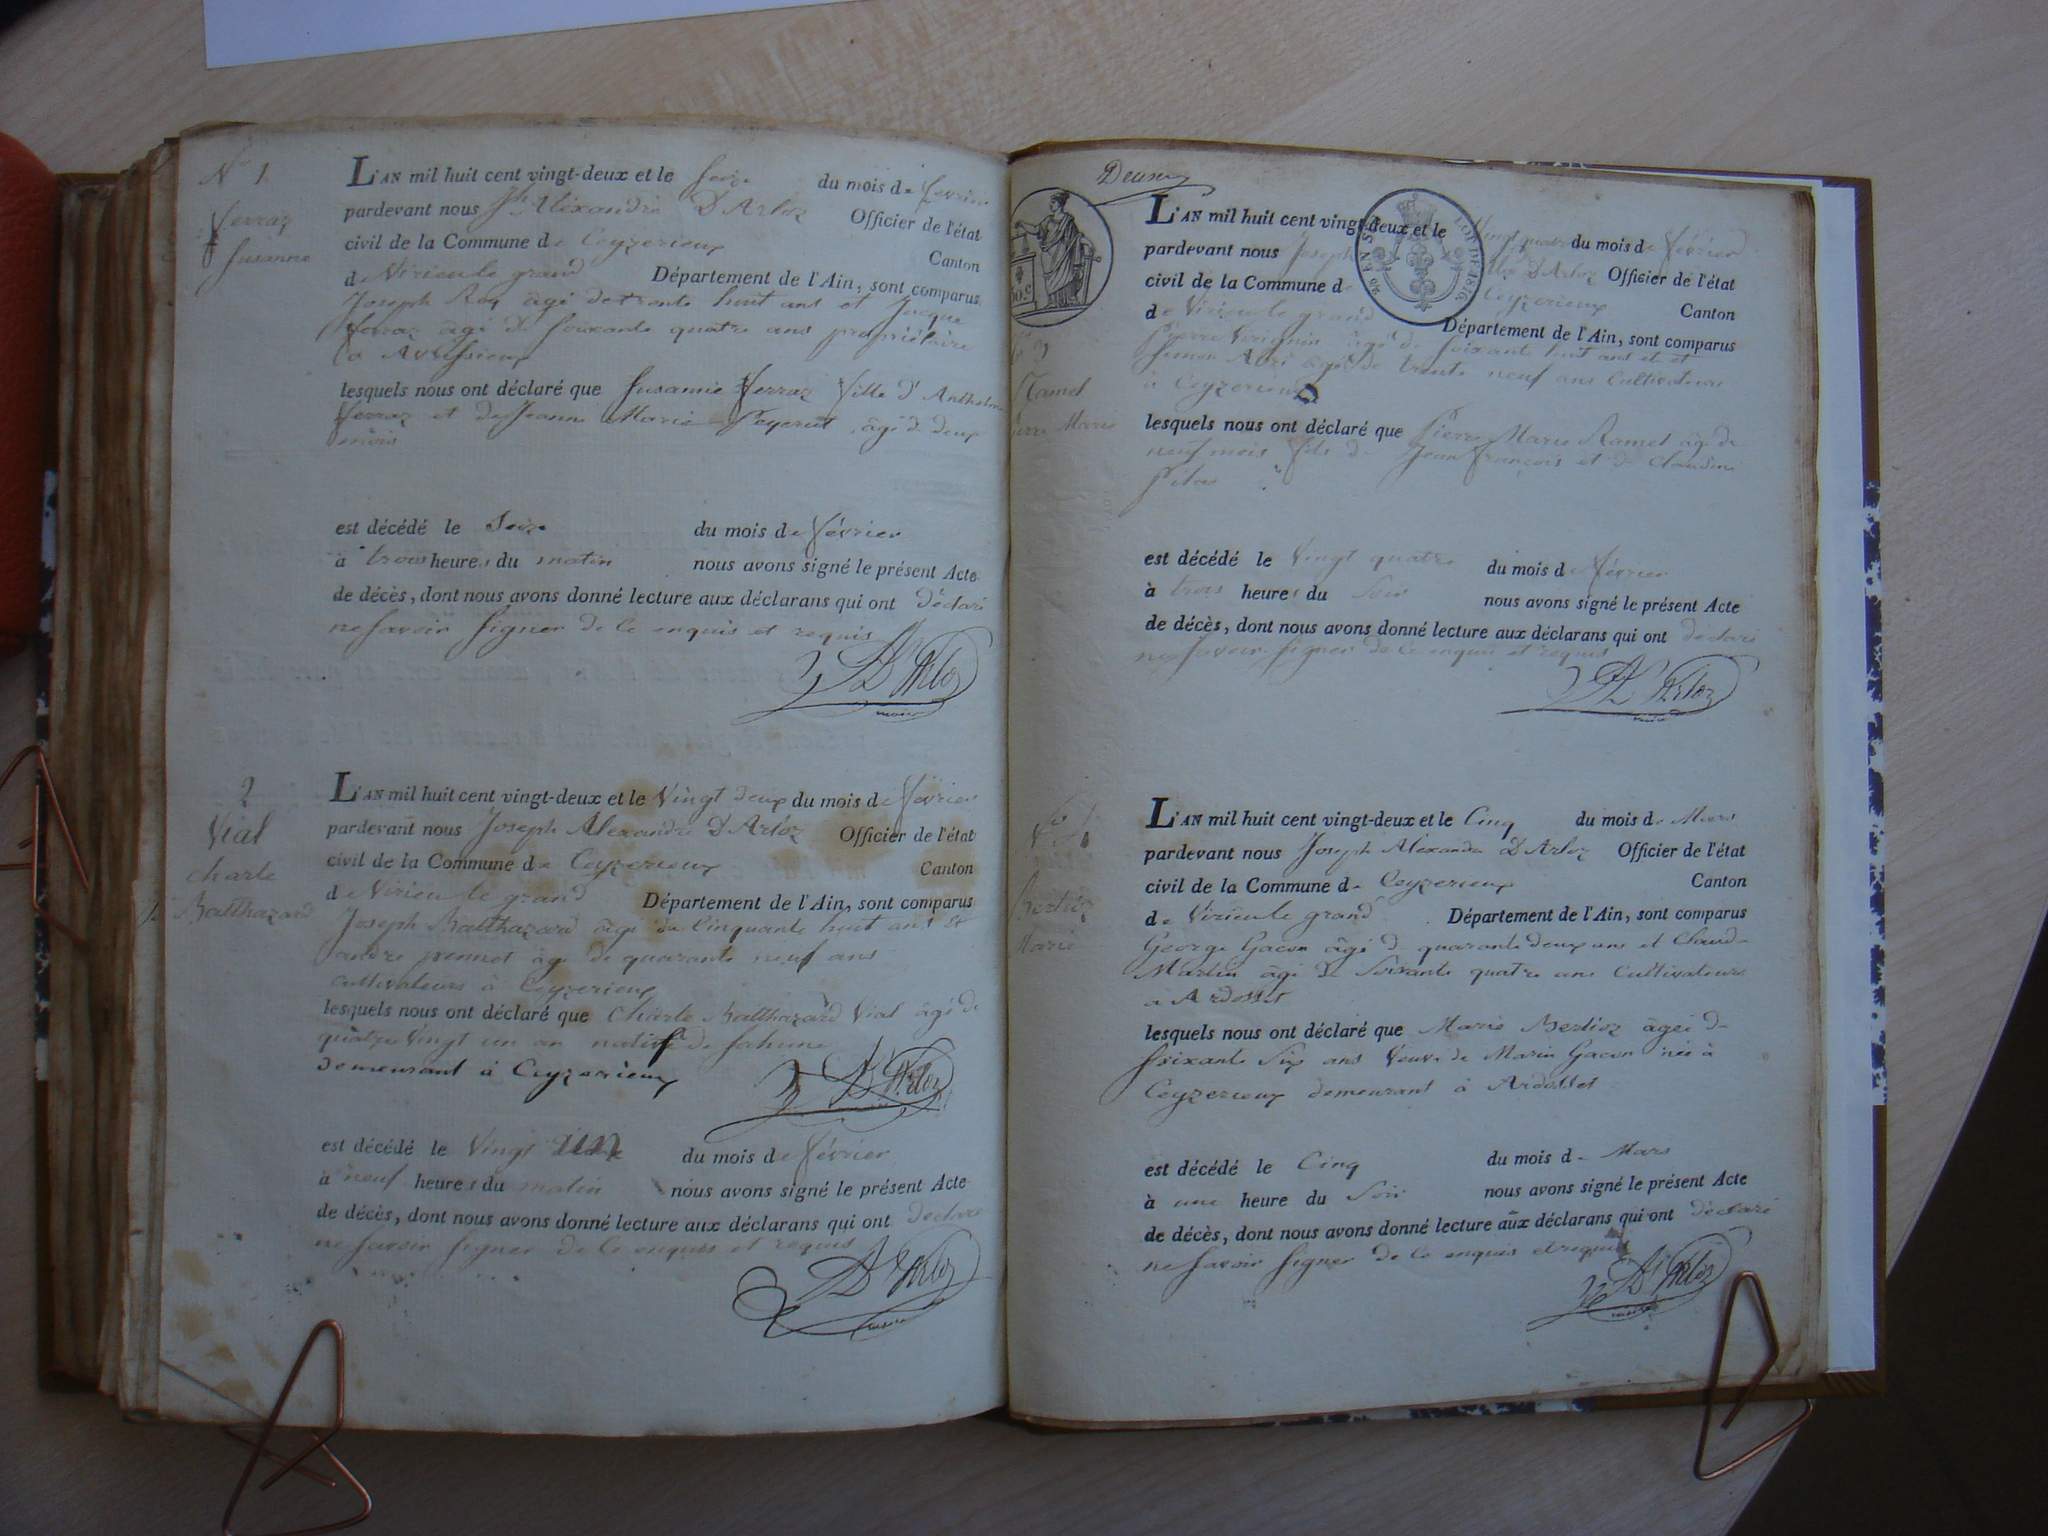 N° 1
Ferraz
Susanne
L'AN mil huit cent vingt-deux et le seize du mois de février
pardevant nous Jh Alexandre D'Arloz Officier de l'état
civil de la Commune de Ceyzerieux Canton
de Virieu le grand Département de l'Ain, sont comparus
Joseph Roy âgé de trente huit ans et Jacque
Ferraz âgé de soixante quatre ans propriétaire
à Avrissieux
lesquels nous ont déclaré que Susanne Ferraz fille d'Anthelme
Ferraz et de Jeanne Marie Peyerut âgé de deux
mois
est décédé le Seize du mois de février
à trois heures du matin nous avons signé le présent Acte
de décès, dont nous avons donné lecture aux déclarans qui ont déclaré
ne savoir signer de ce enquis et requis
D'Arloz
maire
2
Vial
Charle
Balthazard
L'AN mil huit cent vingt-deux et le Vingt deux du mois de février
pardevant nous Joseph Alexandre D'Arloz Officier de l'état
civil de la Commune de Ceyzerieux Canton
de Virieu le grand Département de l'Ain, sont comparus
Joseph Balthazard âgé de Cinquante huit ans et
andre pennet âgé de quarante neuf ans
cultivateurs à Ceyzerieux
lesquels nous ont déclaré que Charle Balthazard Vial âgé de
quatre Vingt un an natif de
demeurant à Ceyzerieux
D'Arloz
est décédé le Vingt du mois de février
à neuf heures du matin nous avons signé le présent Acte
de décès, dont nous avons donné lecture aux déclarans qui ont déclaré
ne savoir signer de ce enquis et requis
D'Arloz
maire
Deux
N° 3
Ramel
Pierre Marie
L'AN mil huit cent vingt-deux et le Vingt quatre du mois de février
pardevant nous Joseph Alex D'Arloz Officier de l'état
civil de la Commune de Ceyzerieux Canton
de Virieu le grand Département de l'Ain, sont comparus
Pierre âgé de soixante huit ans et
Simon âgé de trente neuf ans Cultivateurs
à Ceyzerieux
lesquels nous ont déclaré que Pierre Marie Ramel âgé de
neuf mois fils de Jean François et de Claudine
est décédé le Vingt quatre du mois de février
à trois heures du Soir nous avons signé le présent Acte
de décès, dont nous avons donné lecture aux déclarans qui ont déclaré
ne savoir signer de ce enquis et requis
D'Arloz
maire
Berlioz
Marie
L'AN mil huit cent vingt-deux et le Cinq du mois de Mars
pardevant nous Joseph Alexandre D'Arloz Officier de l'état
civil de la Commune de Ceyzerieux Canton
de Virieu le grand Département de l'Ain, sont comparus
George Gacon âgé de quarante deux ans et Claude
Martin âgé de Soixante quatre ans Cultivateurs
à Ardosset
lesquels nous ont déclaré que Marie Berlioz âgée de
soixante six ans Veuve de Marin Gacon née à
Ceyzerieux demeurant à Ardosset
est décédé le Cinq du mois de Mars
à une heure du Soir nous avons signé le présent Acte
de décès, dont nous avons donné lecture aux déclarans qui ont déclaré
ne savoir signer de ce enquis et requis
D'Arloz
maire